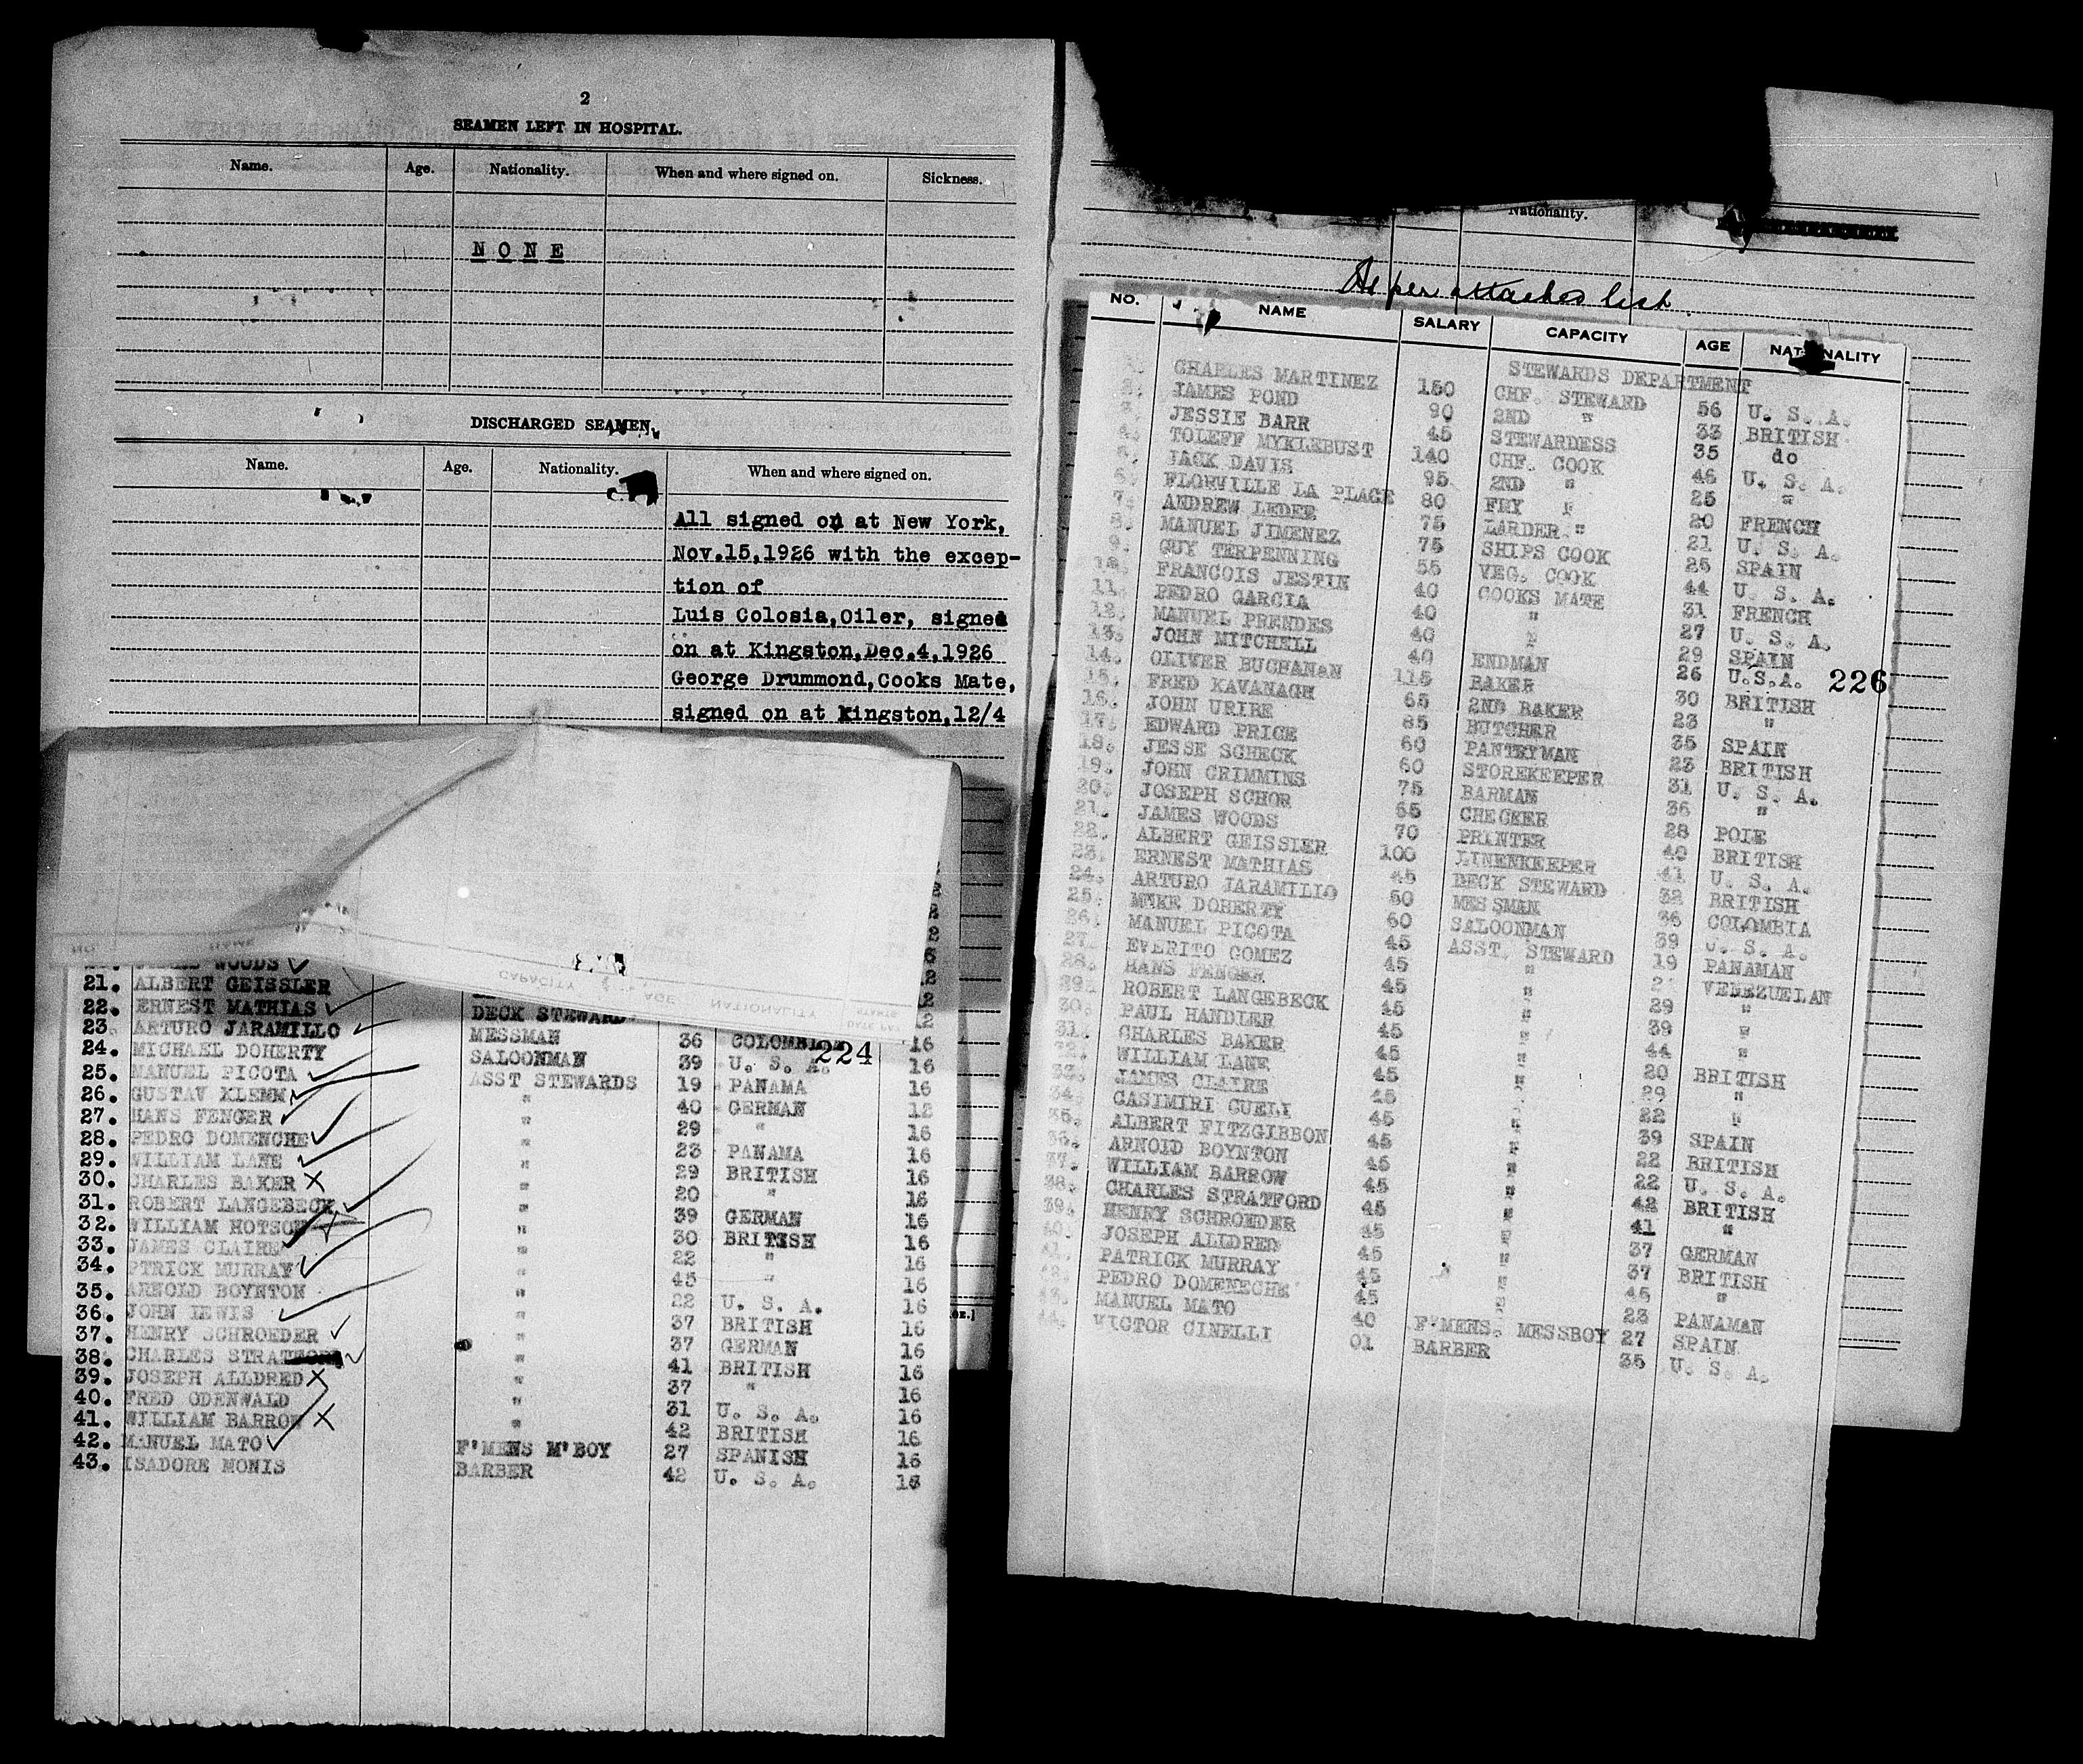 2
SEAMEN LEFT IN HOSPITAL.
Name. Age. Nationality. When and where signed on. Sickness.
N O N E
DISCHARGED SEAMEN.
Name. Age. Nationality. When and where signed on.
All signed on at New York,
Nov.15,1926 with the excep-
tion of
Luis Colosia,Oiler, signed
on at Kingston,Dec.4,1926
George Drummond,Cooks Mate,
signed on at Kingston,12/4
CAPACITY AGE NATIONALITY
WOODS
21. ALBERT GEISSLER
22. ERNEST MATHIAS DECK STEWARD 12
23. ARTURO JARAMILLO MESSMAN 36 COLOMBIA 16
224
24. MICHAEL DOHERTY SALOONMAN 39 U. S. A. 16
25. MANUEL PICOTA ASST STEWARDS 19 PANAMA 16
26. GUSTAV KLEMM " 40 GERMAN 12
27. HANS FENGER " 29 " 16
28. PEDRO DOMENCHE " 23 PANAMA 16
29. WILLIAM LANE " 29 BRITISH 16
30. CHARLES BAKER " 20 " 16
31. ROBERT LANGEBECK " 39 GERMAN 16
32. WILLIAM HOTSON " 30 BRITISH 16
33. JAMES CLAIRE " 22 " 16
34. PTRICK MURRAY " 45 " 16
35. ARNOLD BOYNTON " 22 U. S. A. 16
36. JOHN LEWIS " 37 BRITISH 16
37. HENRY SCHROEDER " 37 GERMAN 16
38. CHARLES STRATFORD " 41 BRITISH 16
39. JOSEPH ALLDRED " 37 " 16
40. FRED ODENWALD " 31 U. S. A. 16
41. WILLIAM BARROW " 42 BRITISH 16
42. MANUEL MATO F'MENS M'BOY 27 SPANISH 16
43. ISADORE MONIS BARBER 42 U. S. A. 16
Nationality.
As per attached list.
NO. NAME SALARY CAPACITY AGE NATIONALITY
STEWARDS DEPARTMENT
1. CHARLES MARTINEZ 150 CHF. STEWARD 56 U. S. A.
2. JAMES POND 90 2ND " 33 BRITISH
3. JESSIE BARR 45 STEWARDESS 35 do
4. TOLEFF MYKLEBUST 140 CHF. COOK 46 U. S. A.
5. JACK DAVIS 95 2ND " 25 "
6. FLORVILLE LA PLACE 80 FRY " 20 FRENCH
7. ANDREW LEDER 75 LARDER " 21 U. S. A.
8. MANUEL JIMENEZ 75 SHIPS COOK 25 SPAIN
9. GUY TERPENNING 55 VEG. COOK 44 U. S. A.
10. FRANCOIS JESTIN 40 COOKS MATE 31 FRENCH
11. PEDRO GARCIA 40 " 27 U. S. A.
12. MANUEL PRENDES 40 " 29 SPAIN
13. JOHN MITCHELL 40 ENDMAN 26 U.S.A.
226
14. OLIVER BUCHANAN 115 BAKER 30 BRITISH
15. FRED KAVANAGH 65 2ND BAKER 23 "
16. JOHN URIBE 85 BUTCHER 35 SPAIN
17. EDWARD PRICE 60 PANTRYMAN 23 BRITISH
18. JESSE SCHECK 60 STOREKEEPER 31 U. S. A.
19. JOHN CRIMMINS 75 BARMAN 36 "
20. JOSEPH SCHOR 65 CHECKER 28 POLE
21. JAMES WOODS 70 PRINTER 40 BRITISH
22. ALBERT GEISSLER 100 LINENKEEPER 41 U. S. A.
23. ERNEST MATHIAS 45 DECK STEWARD 32 BRITISH
24. ARTURO JARAMILLO 50 MESSMAN 36 COLOMBIA
25. MIKE DOHERTY 60 SALOONMAN 39 U. S. A.
26. MANUEL PICOTA 45 ASST. STEWARD 19 PANAMAN
27. EVERITO GOMEZ 45 " VENEZUELAN
28. HANS FENGER 45 " 29 "
29. ROBERT LANGEBECK 45 " 39 "
30. PAUL HANDLER 45 " 44 "
31. CHARLES BAKER 45 " 20 BRITISH
32. WILLIAM LANE 45 " 29 "
33. JAMES CLAIRE 45 " 22 "
34. CASIMIRI GUELI 45 " 39 SPAIN
35. ALBERT FITZGIBBON 45 " 22 BRITISH
36. ARNOLD BOYNTON 45 " 22 U. S. A.
37. WILLIAM BARROW 45 " 42 BRITISH
38. CHARLES STRATFORD 45 " 41 "
39. HENRY SCHROEDER 45 " 37 GERMAN
40. JOSEPH ALLDRED 45 " 37 BRITISH
41. PATRICK MURRAY 45 " 45 "
42. PEDRO DOMENECHE 45 " 23 PANAMAN
43. MANUEL MATO 40 F'MENS. MESSBOY 27 SPAIN
44. VICTOR CINELLI 01 BARBER 35 U. S. A.